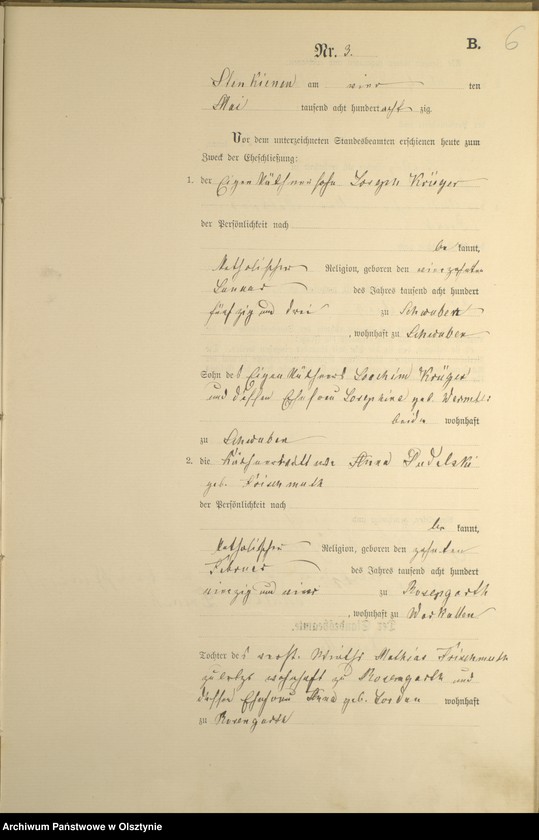 6
B.
Nr. 3.
am vier ten
Mai tausend acht hundert acht zig.
Vor dem unterzeichneten Standesbeamten erschienen heute zum
Zweck der Eheschließung:
1. der Eigenkäthnersohn Joseph Krüger
der Persönlichkeit nach
be kannt,
katholischer Religion, geboren den vierzehnten
Januar des Jahres tausend acht hundert
fünfzig und drei zu Schwuben
, wohnhaft zu Schwuben
Sohn des Eigenkäthners Joachim Krüger
und dessen Ehefrau Josephine geb.
beide wohnhaft
zu Schwuben
2. die Anna
geb. Frischmuth
der Persönlichkeit nach
be kannt,
katholischer Religion, geboren den zehnten
Februar des Jahres tausend acht hundert
vierzig und vier zu Rosengarth
, wohnhaft zu Warkallen
Tochter des verst. Wirths Mathias Frischmuth
zuletzt wohnhaft zu Rosengarth und
dessen Ehefrau Anna geb. wohnhaft
zu Rosengarth
Archiwum Państwowe w Olsztynie